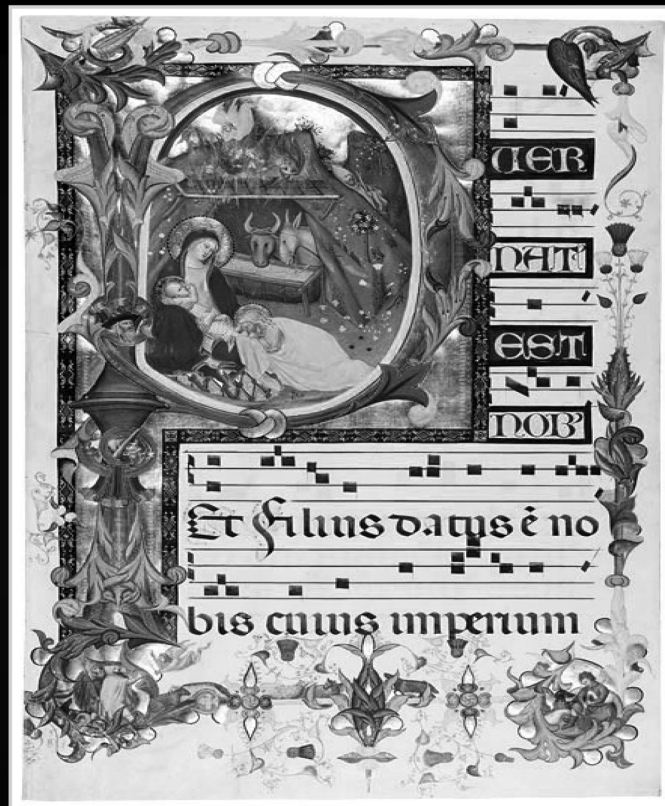 PUER
NATI
EST
NOB'
Et Filius datus ē no
bis cuius imperium